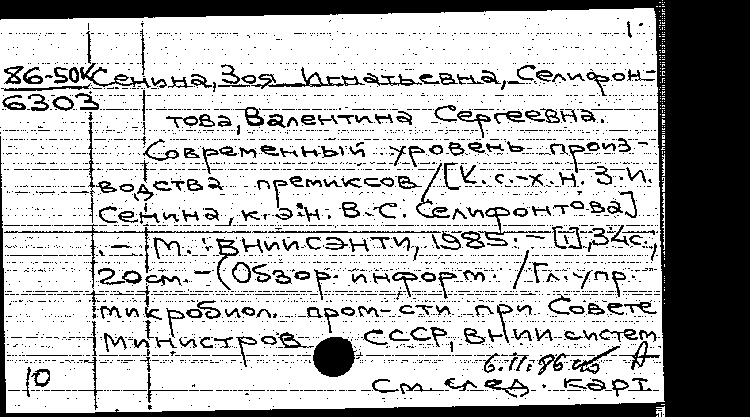 1.
86-50К Сенина, Зоя Игнатьевна, Селифон-
6303
това, Валентина Сергеевна.
Современный уровень произ-
водства премиксов / [К.с.-х.н. З.И.
Сенина, к.э.н. В.С. Селифонтова]
. – М. : ВНИИСЭНТИ, 1985. – [1], 34с.;
20см. – (Обзор. информ. / Гл. упр.
микробиол. пром-сти при Совете
Министров СССР, ВНИИ систем
6.11.86
10
См. след. карт.